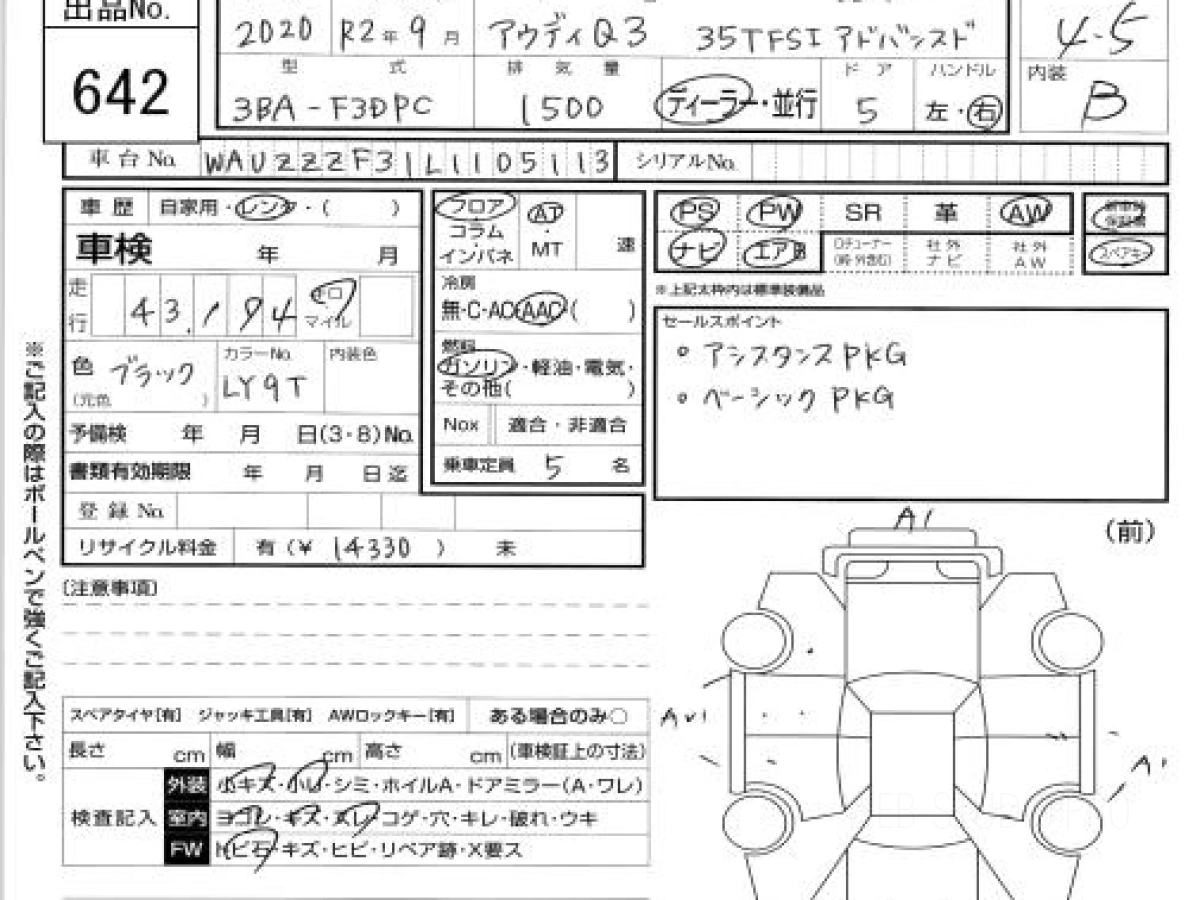 出品No.
642
2020 R2年9月 アウディQ3 35TFSI アドバンスド 4.5
型式 排気量 ドア ハンドル 内装
3BA-F3DPC 1500 ディーラー・並行 5 左・右 B
車台No. WAUZZZF31L1105113 シリアルNo.
車歴 自家用・レンタ・( )
車検 年 月
走行 43,194 キロ マイル
色 ブラック (元色 ) カラーNo. LY9T 内装色
予備検 年 月 日(3・8)No.
書類有効期限 年 月 日迄
登録No.
リサイクル料金 有(¥ 14330 ) 未
フロア・コラム・インパネ
AT・MT 速
冷房
無・C・AC・AAC・( )
燃料
ガソリン・軽油・電気・
その他( )
Nox 適合・非適合
乗車定員 5 名
PS PW SR 革 AW
ナビ エアB 社外ナビ 社外AW スペアキー
※上記太枠内は標準装備品
セールスポイント
○ アシスタンスPKG
○ ベーシックPKG
※ご記入の際はボールペンで強くご記入下さい。
[注意事項]
A1
(前)
A1
スペアタイヤ[有] ジャッキ工具[有] AWロックキー[有] ある場合のみ○
長さ cm 幅 cm 高さ cm (車検証上の寸法)
検査記入
外装 小キズ・小U・シミ・ホイルA・ドアミラー(A・ワレ)
室内 ヨゴレ・キズ・スレ・コゲ・穴・キレ・破れ・ウキ
FW トビ石・キズ・ヒビ・リペア跡・X要ス